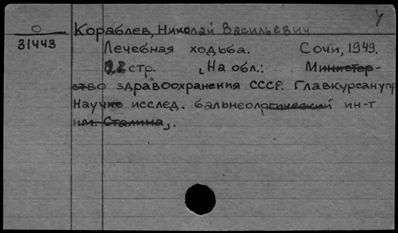 У
О Кораблев, Николай Васильевич
31443 Лечебная ходьба. Сочи, 1949.
22 стр. На обл.: Министер-
ство здравоохранения СССР. Главкурсанупр
Научно исслед. бальнеологический ин-т
им. Сталина.